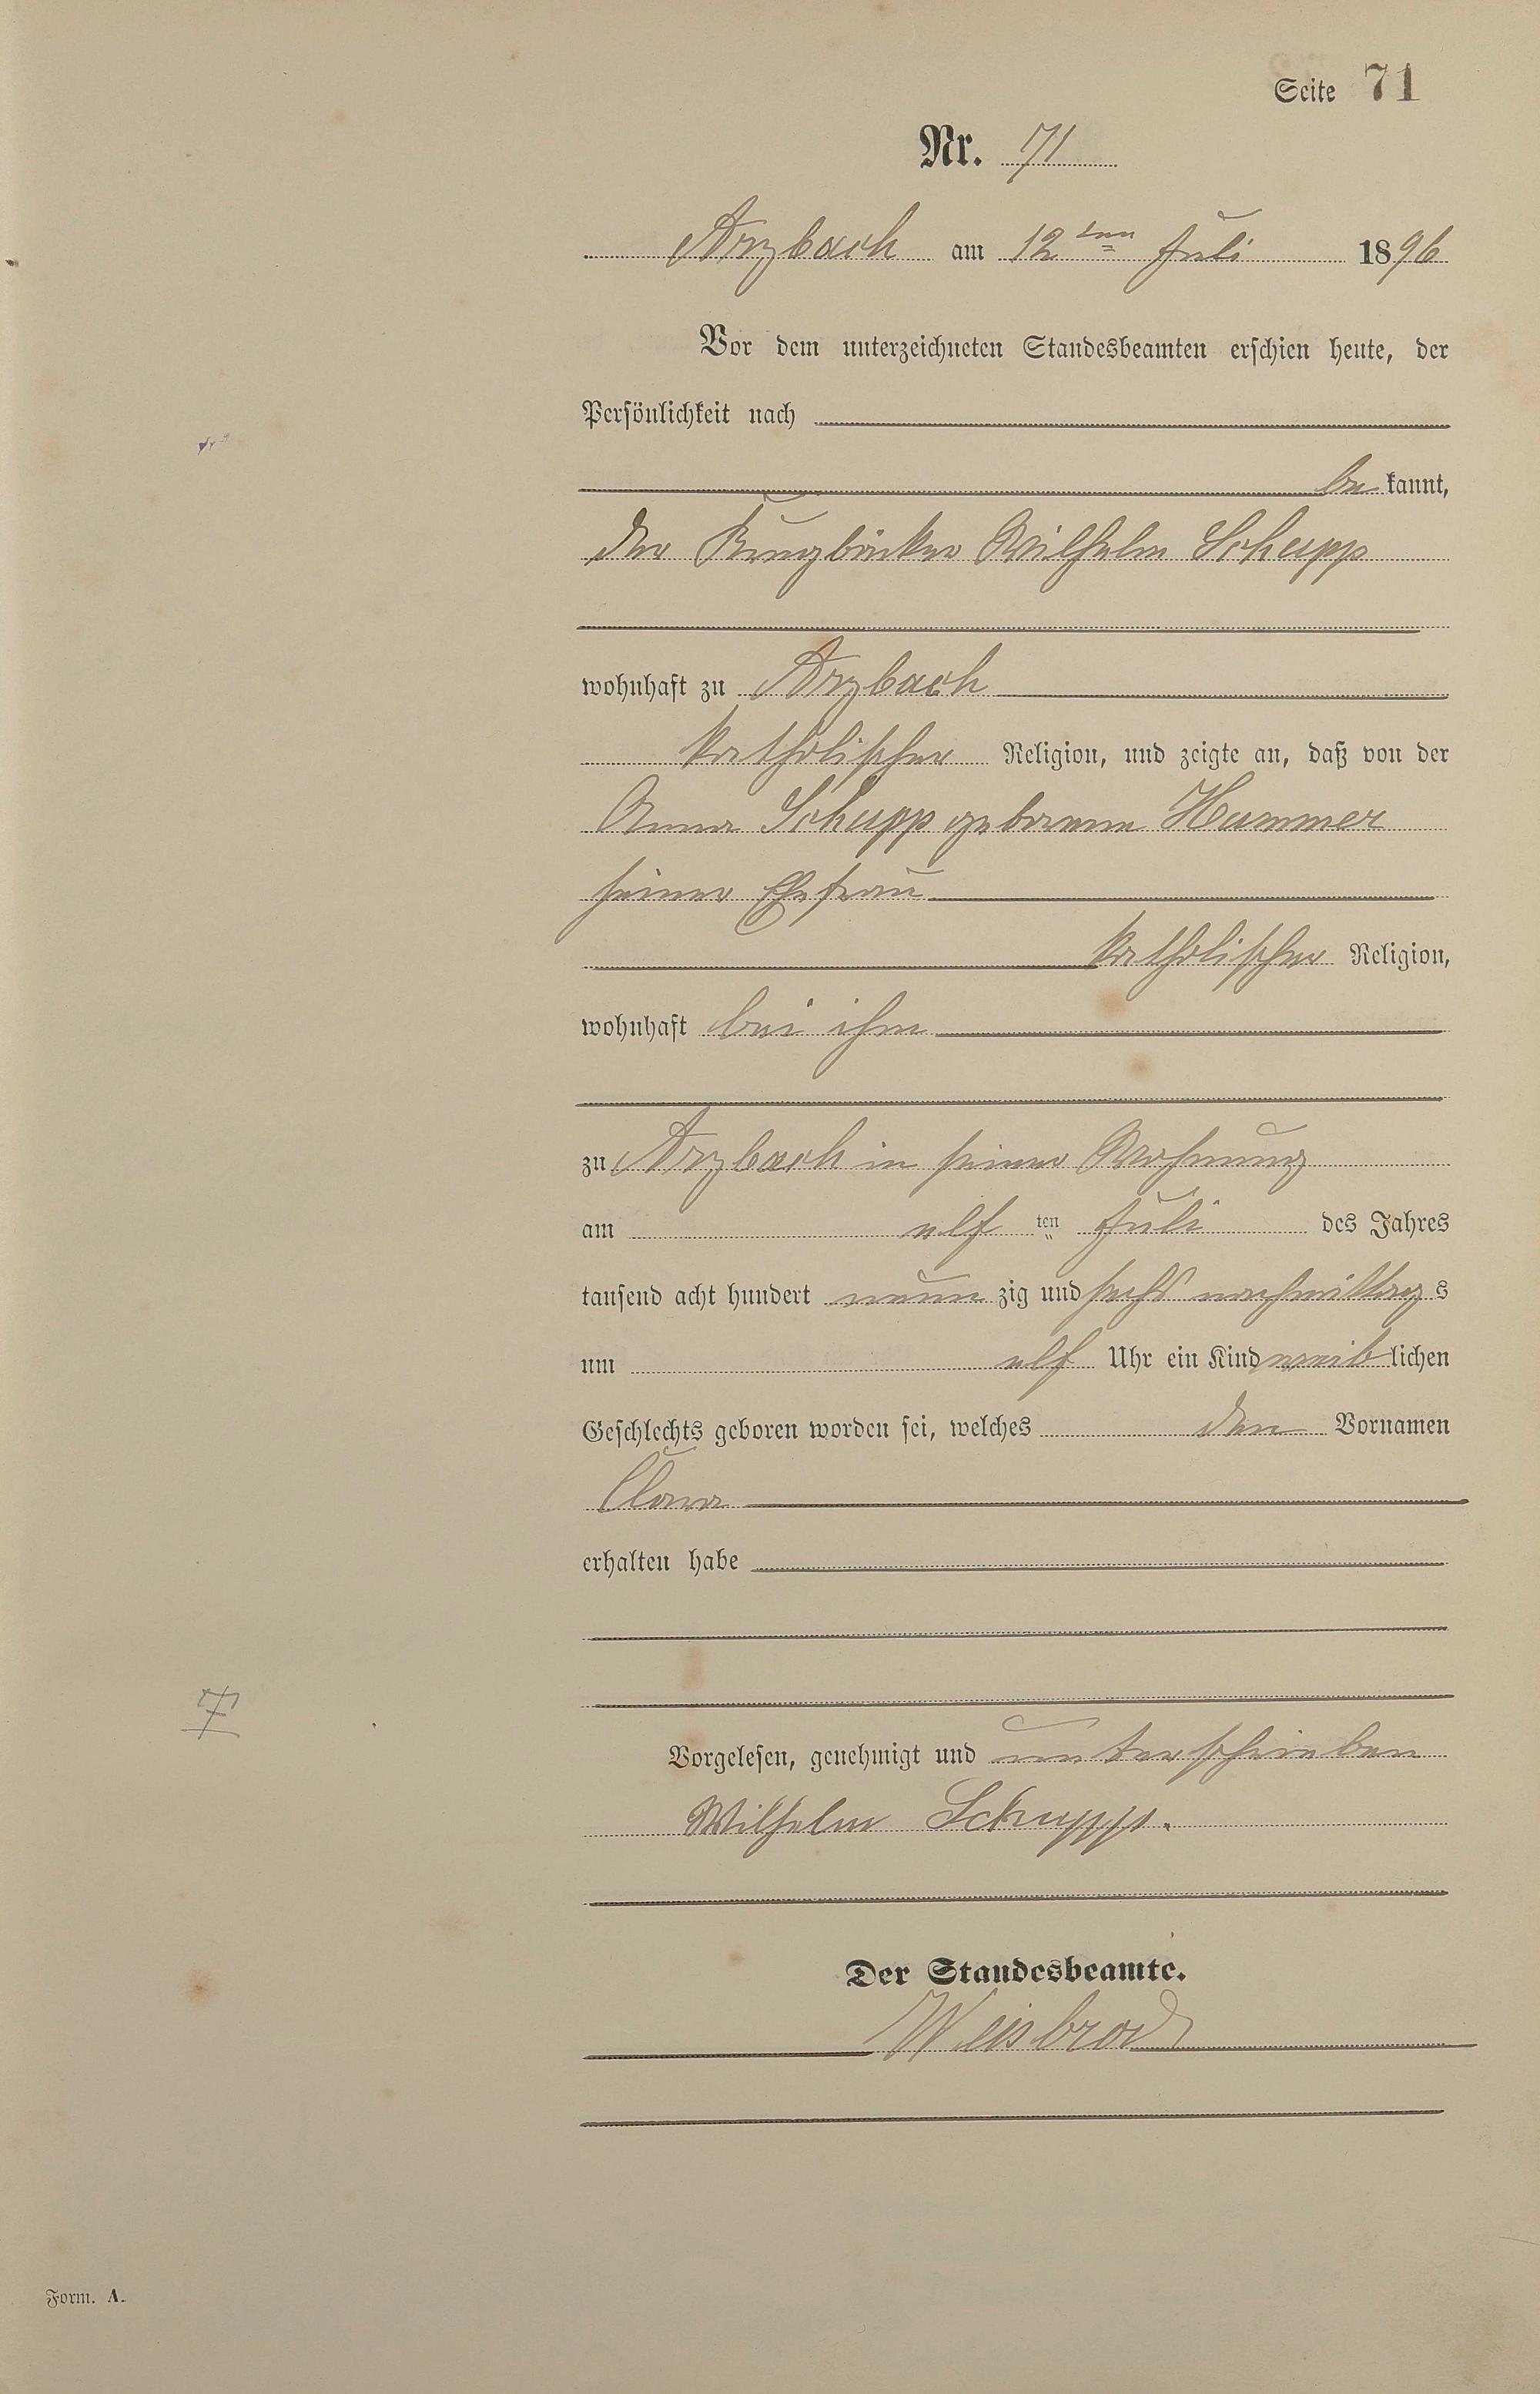 Seite 71
Nr. 71
Arzbach am 12ten Juli 1896
Vor dem unterzeichneten Standesbeamten erschien heute, der
Persönlichkeit nach
be kannt,
der Krugbäcker Wilhelm Schupp
wohnhaft zu Arzbach
katholischer Religion, und zeigte an, daß von der
Anna Schupp geborenen Hummer
seiner Ehefrau
katholischer Religion,
wohnhaft bei ihm
zu Arzbach in seiner Wohnung
am elf ten Juli des Jahres
tausend acht hundert neun zig und sechs nachmittag s
um elf Uhr ein Kind weib lichen
Geschlechts geboren worden sei, welches den Vornamen
Clara
erhalten habe
Vorgelesen, genehmigt und unterschrieben
Wilhelm Schupp.
Der Standesbeamte.
Weisbrod
Form. A.